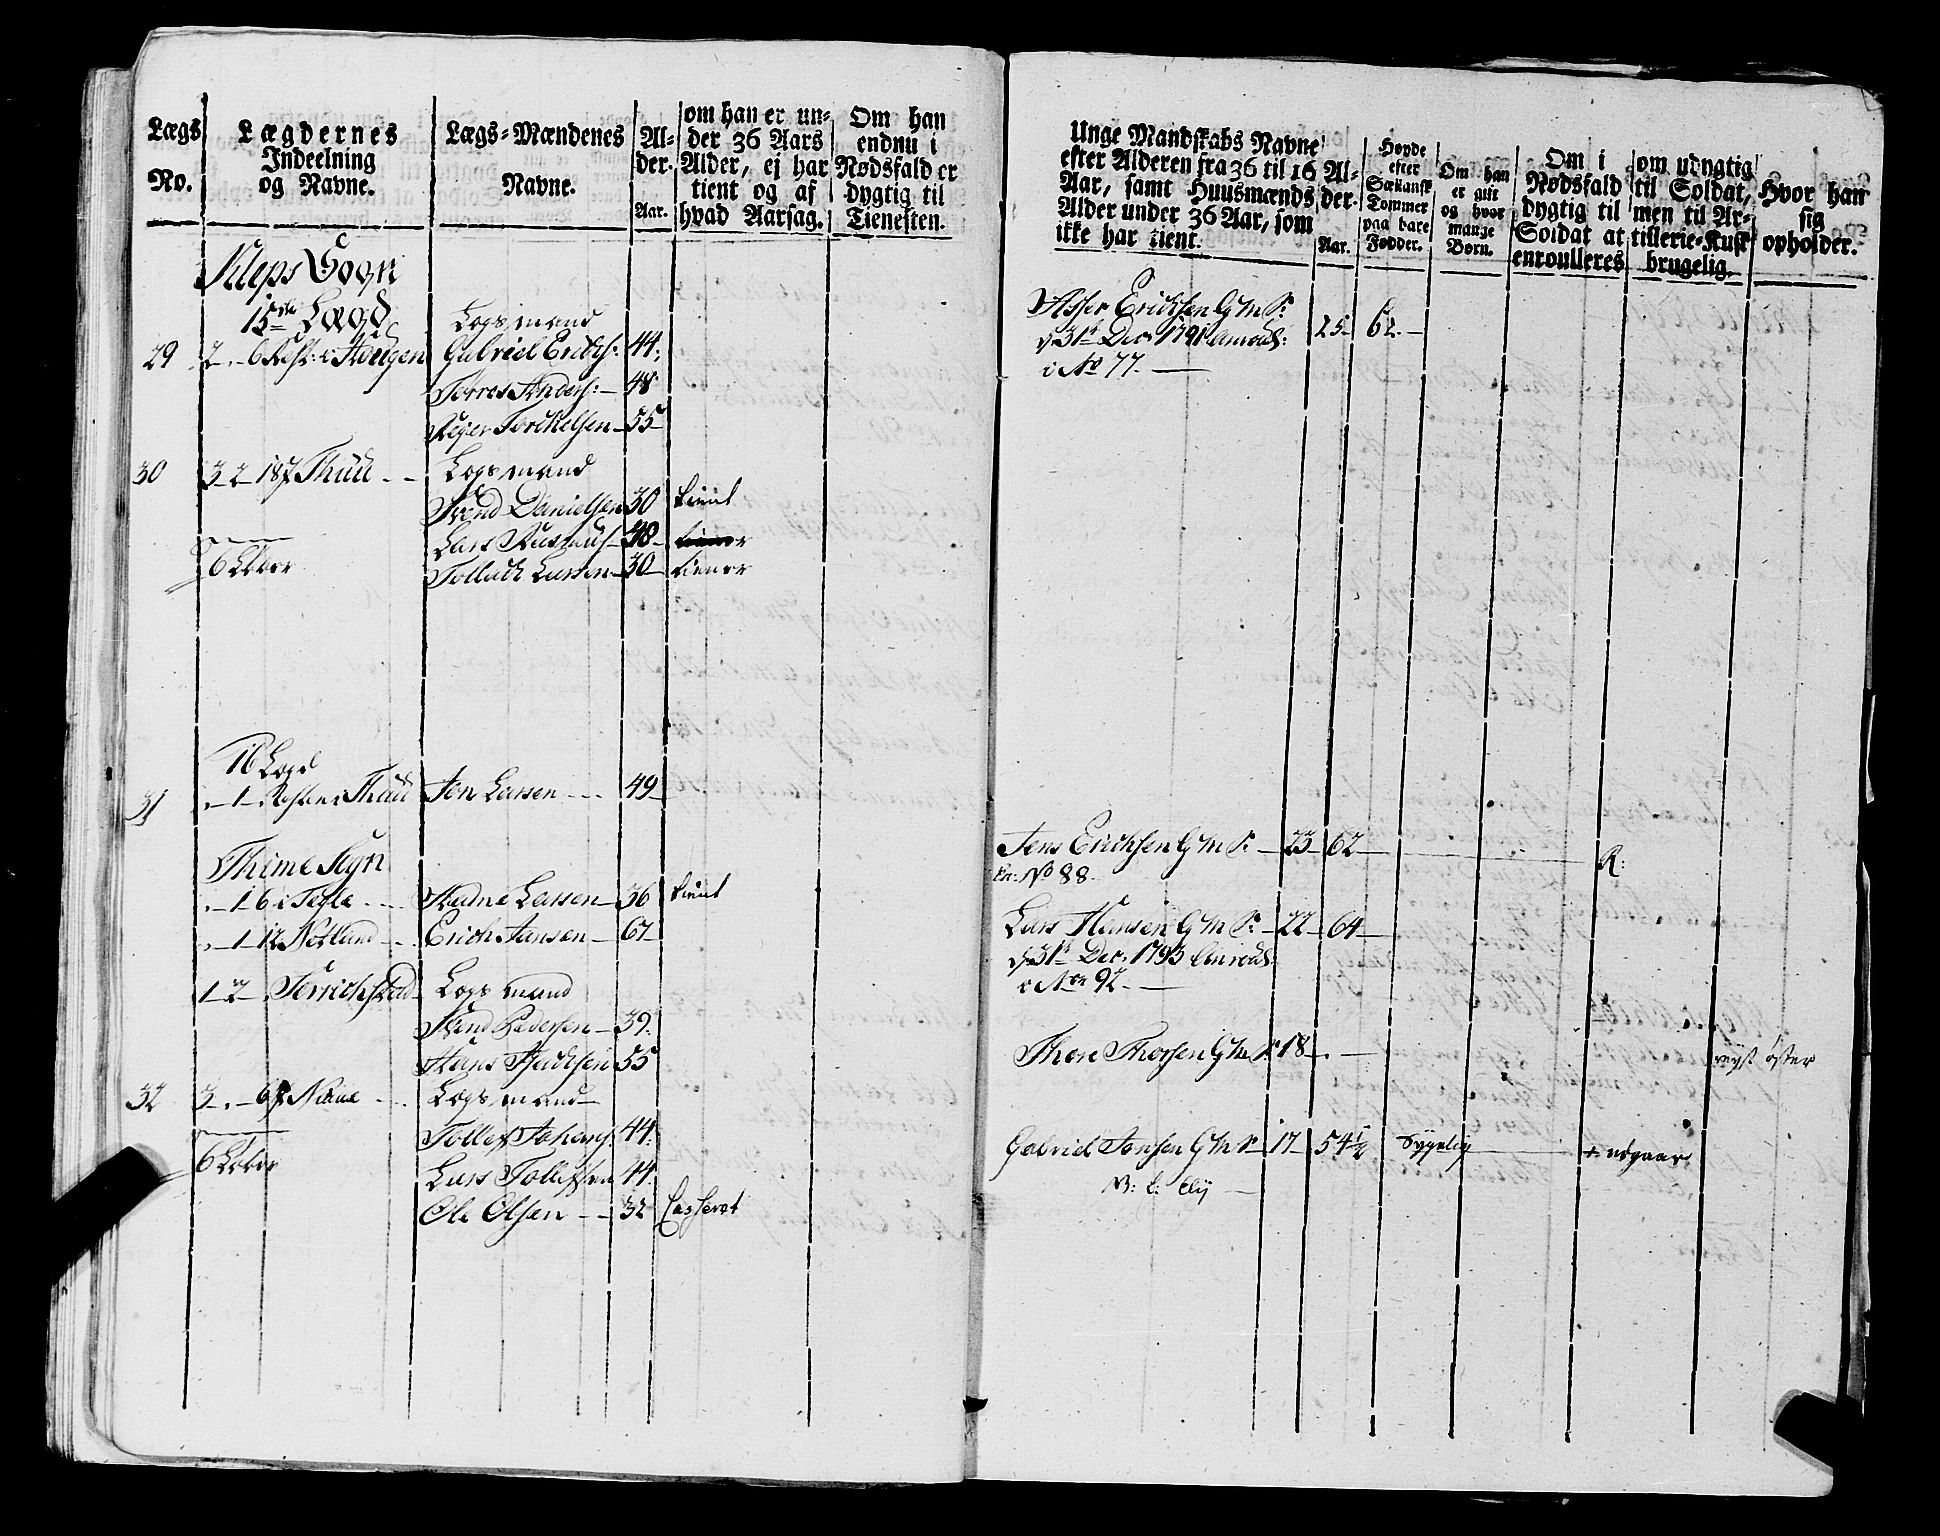 Lægs No.
Lægdernes Indeelning og Navne.
Lægs-Mændenes Navne.
Al-der. Aar.
om han er un-der 36 Aars Alder, ej har tient og af hvad Aarsag.
Om han endnu i Nødsfald er dygtig til Tienesten.
Kleps Sogn
15de Lægd Logsmand
29 2 - 6 Gabriel Erichs: 44.
Torres Anders: - 48
Reyer Torchelsen - 55
30 3 2 187 Thuu - - Logsmand
Svend Danielsen 30 tient
Lars - 48 - tiener
6 Løber Tollach Larsen - 30 tiener
16 Lægd
31 - 1 - Resten i Thuu Jon Larsen - - - 49
Thime Sogn
- 1 - 6 i Larsen - 36 tient
- 1 - 12 Netland - - Erich Jansen - 67
1 2 - Logsmand
Svend Pedersen - 39.
Hans 55
32 3 - 67 - - Logsmand -
Tollef Johans: 44.
6 Løber Lars Tollefsen 44.
Ole Olsen - - 32 Casseret
Unge Mandskabs Navne efter Alderen fra 36 til 16 Aar, samt Huusmænds Alder under 36 Aar, som ikke har tient.
Al-der. Aar.
Høyde efter Siællansk Tommer paa bare Fødder.
Om han er gift og hvor mange Børn.
Om i Nødsfald dygtig til Soldat at enroulleres
om udygtig til Soldat, men til Ar-tillerie-Kusk brugelig.
Hvor han sig opholder.
Asser Erichsen G M S: 25 - 62. -
d 31t Decr 1791 Anroul:
i No 77. -
Jens Erichsen G M S: - 23 - 62 - R:
En: No 88.
Lars Hansen G M S: - 22 - 64 -
d 31t Decr 1793 Anroul:
i No 92. -
Thore Thorsen G M S 18 - . - reyst øster
Gabriel Jensen G M S - 17 - 54 1/2 Sygelig + udgaar